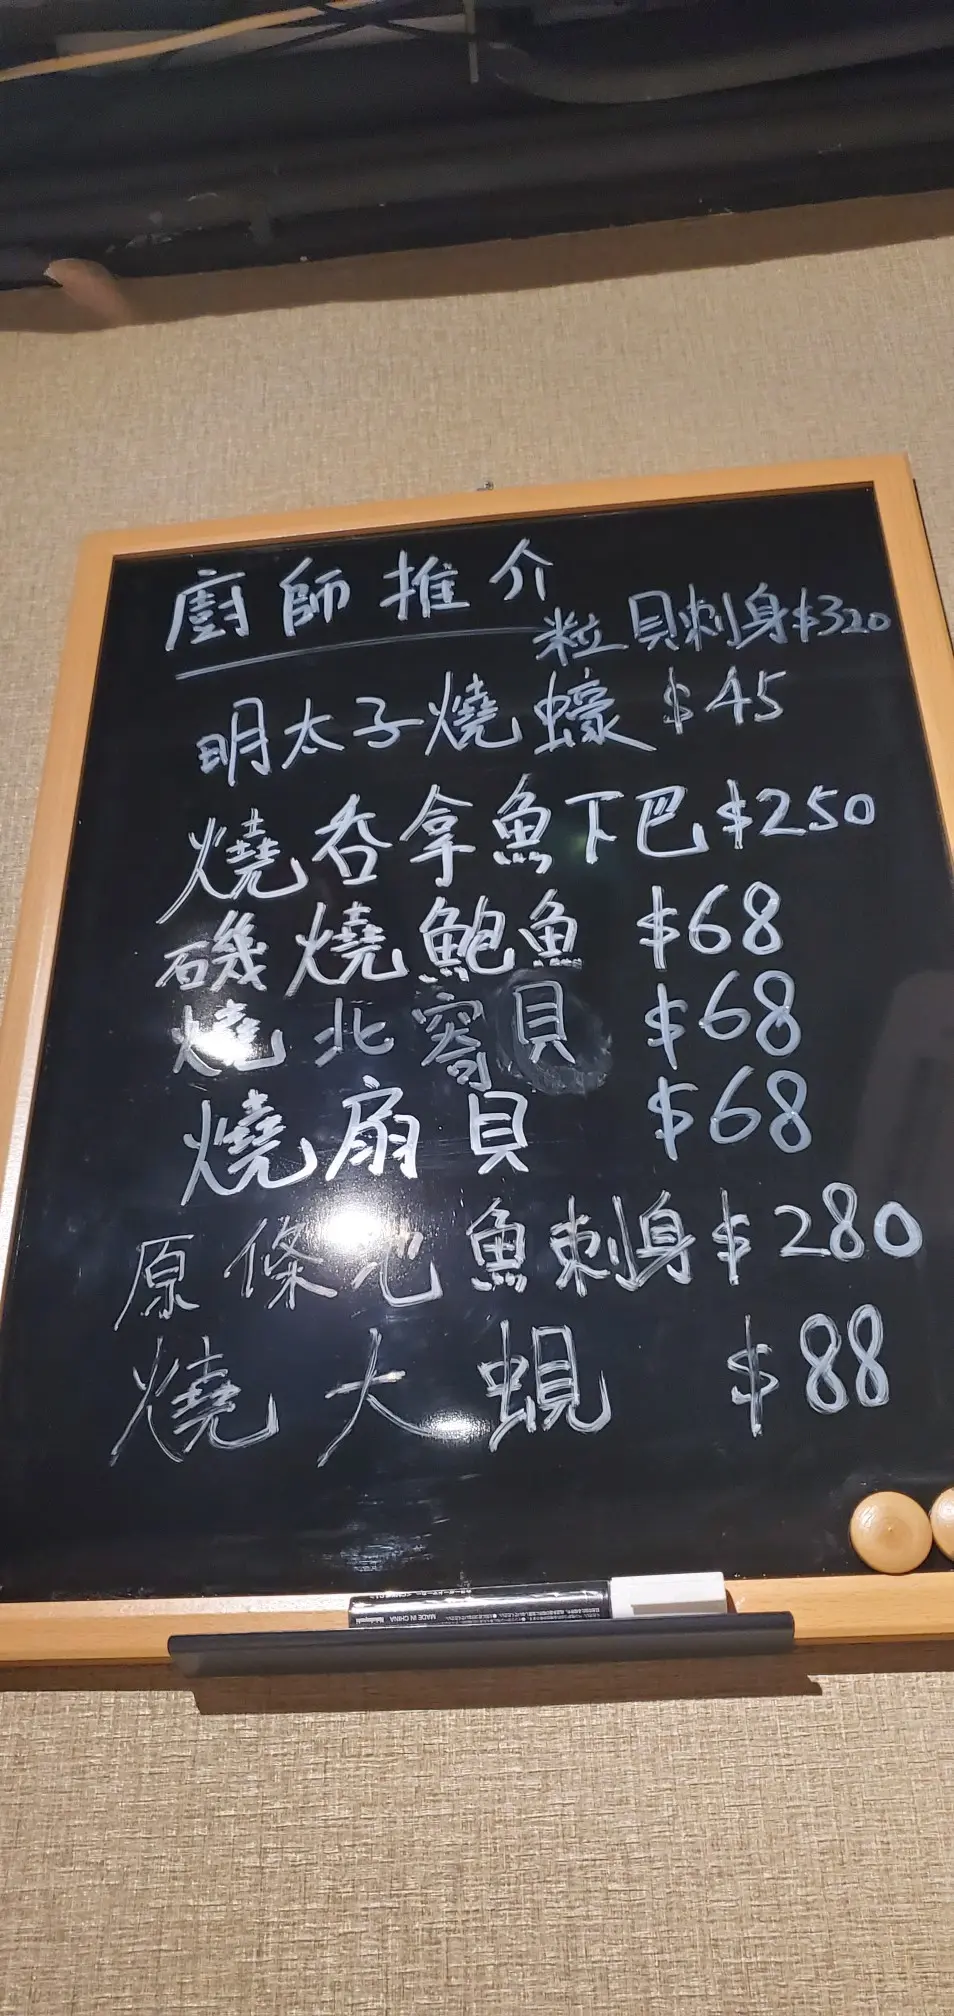 廚師推介
粒貝刺身$320
明太子燒蠔 $45
燒吞拿魚下巴 $250
磯燒鮑魚 $68
燒北寄貝 $68
燒扇貝 $68
原條 魚刺身 $280
燒大蜆 $88
MADE IN CHINA